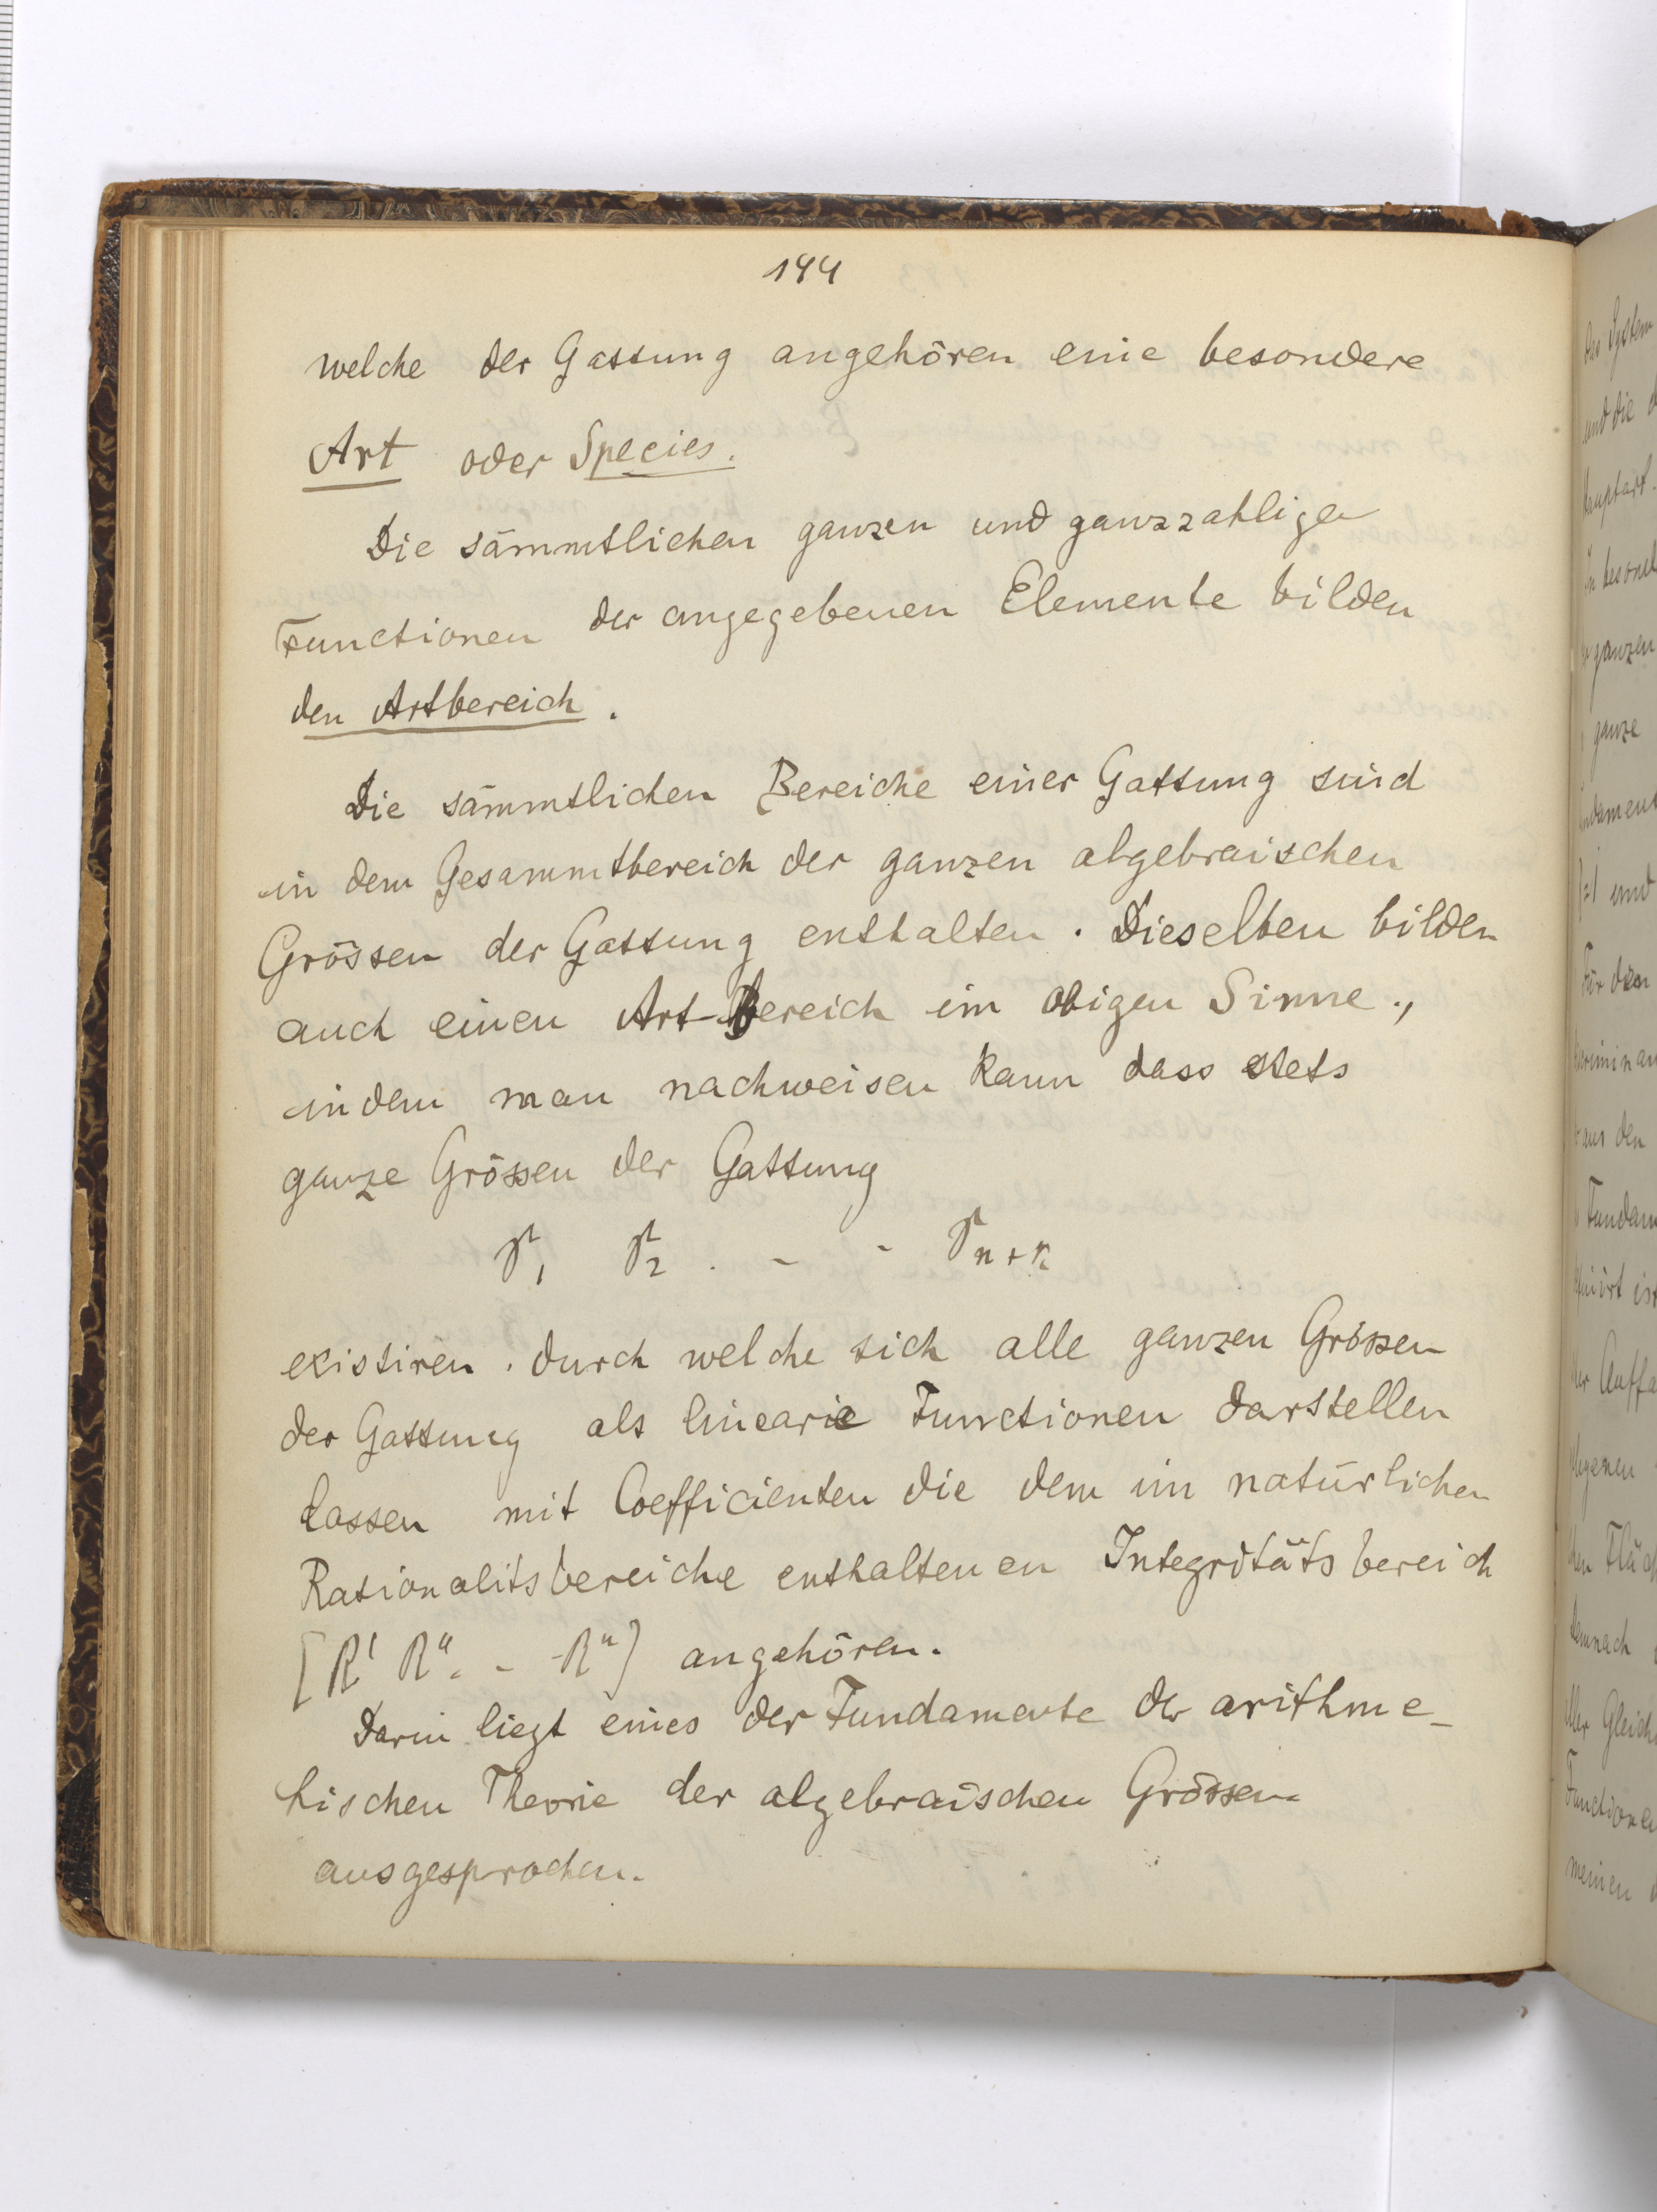 144
welche der Gattung angehören eine besondere
Art oder Species.
Die sämmtlichen ganzen und ganzzahligen
Functionen der angegebenen Elemente bilden
den Artbereich.
Die sämmtlichen Bereiche einer Gattung sind
in dem Gesammtbereich der ganzen algebraischen
Grössen der Gattung enthalten. Dieselben bilden
auch einen Art-Bereich im obigen Sinne.,
indem man nachweisen kann dass stets
ganze Grössen der Gattung
existiren. durch welche sich alle ganzen Grössen
der Gattung als lineare Functionen darstellen
lassen mit Coefficienten die dem im natürlichen
Rationalitsbereiche enthaltenen Integritätsbereich
[R' R'' . - - Rⁿ] angehören.
Darin liegt eines der Fundamente der arithme-
tischen Theorie der algebraischen Grössen
ausgesprochen.
das System
und die
Hauptart.
In
ganzen
ganze
und
Für den
aus den
ist
Functionen
meinen